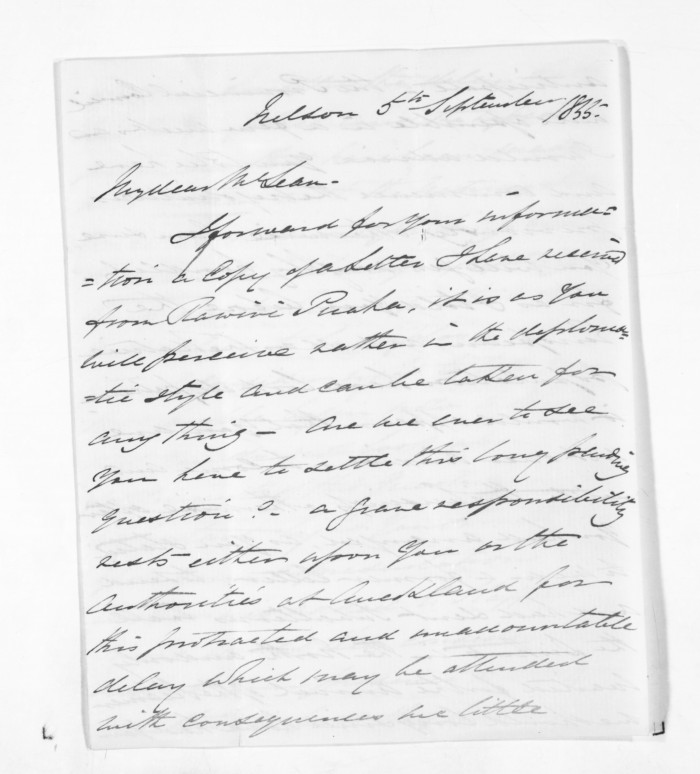 Nelson 5th September 1855.
My dear McLean -
I forward for your informa=
=tion a Copy of a letter I have received
from Rawiri Puaha, it is as You
will perceive rather in the diploma=
=tic style and can be taken for
any thing - are we ever to see
You here to settle this long pending
question? - a grave responsibility
rests either upon You or the
Authorities at Auckland for
this protracted and unaccountable
delay which may be attended
with consequences we little